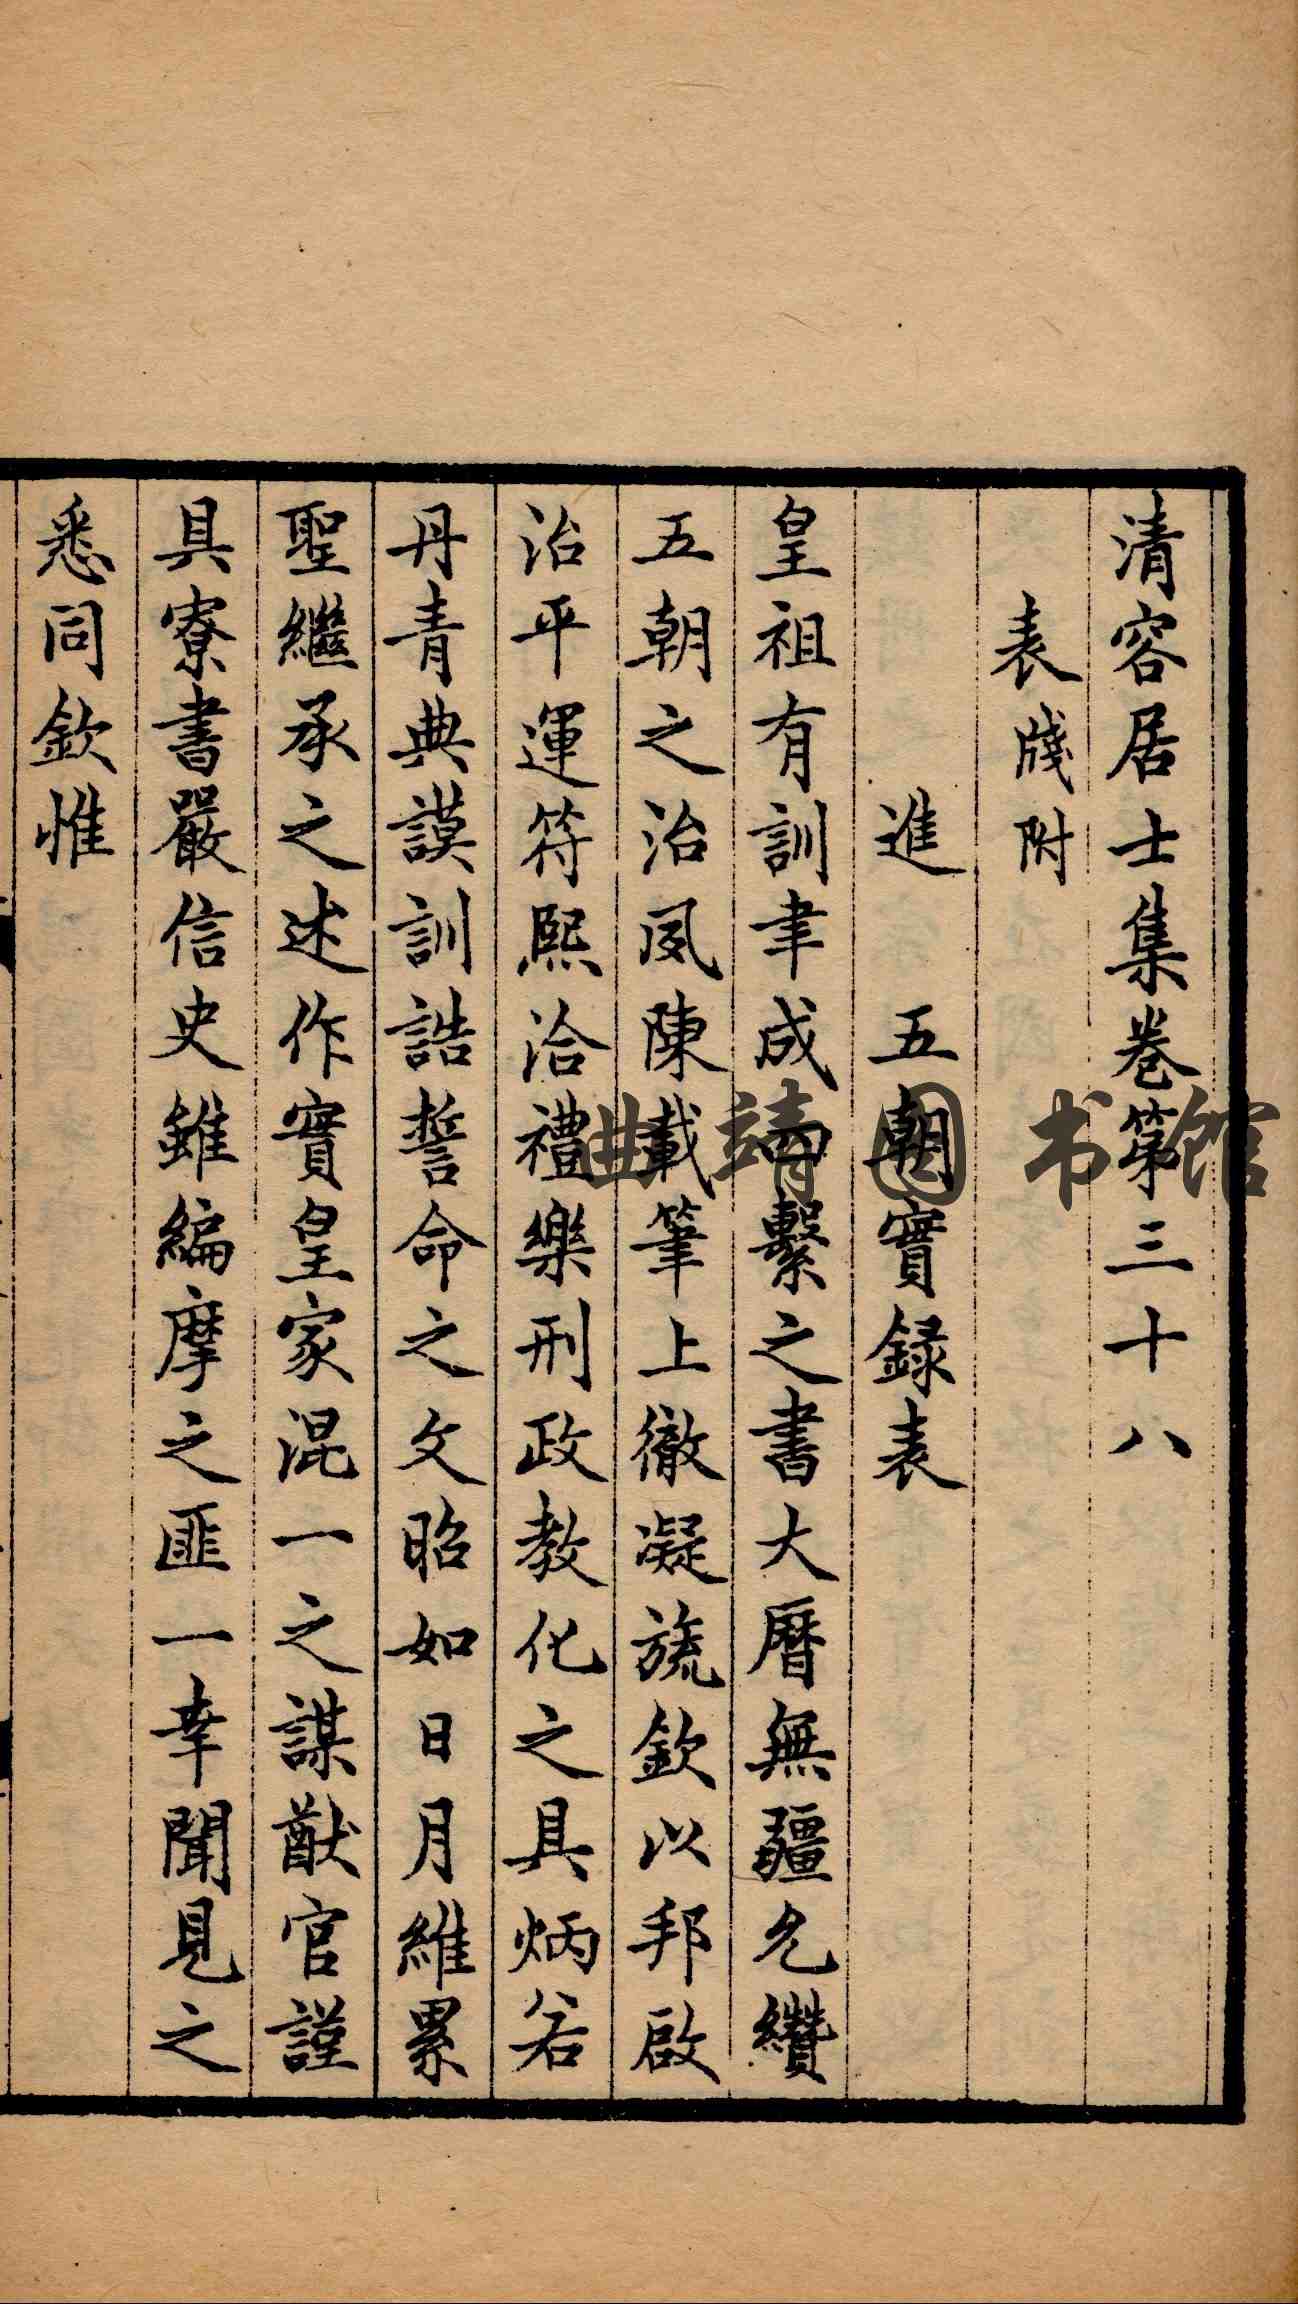 清容居士集卷第三十八
表牋附
進 五朝實録表
皇祖有訓聿成繫之書大曆無疆允纘
五朝之治夙陳載筆上徹凝旒欽以邦啟
治平運符熙洽禮樂刑政教化之具炳若
丹青典謨訓誥誓命之文昭如日月維累
聖繼承之述作實皇家混一之謀猷官謹
具寮書嚴信史雖編摩之匪一幸聞見之
悉同欽惟
曲靖图书馆